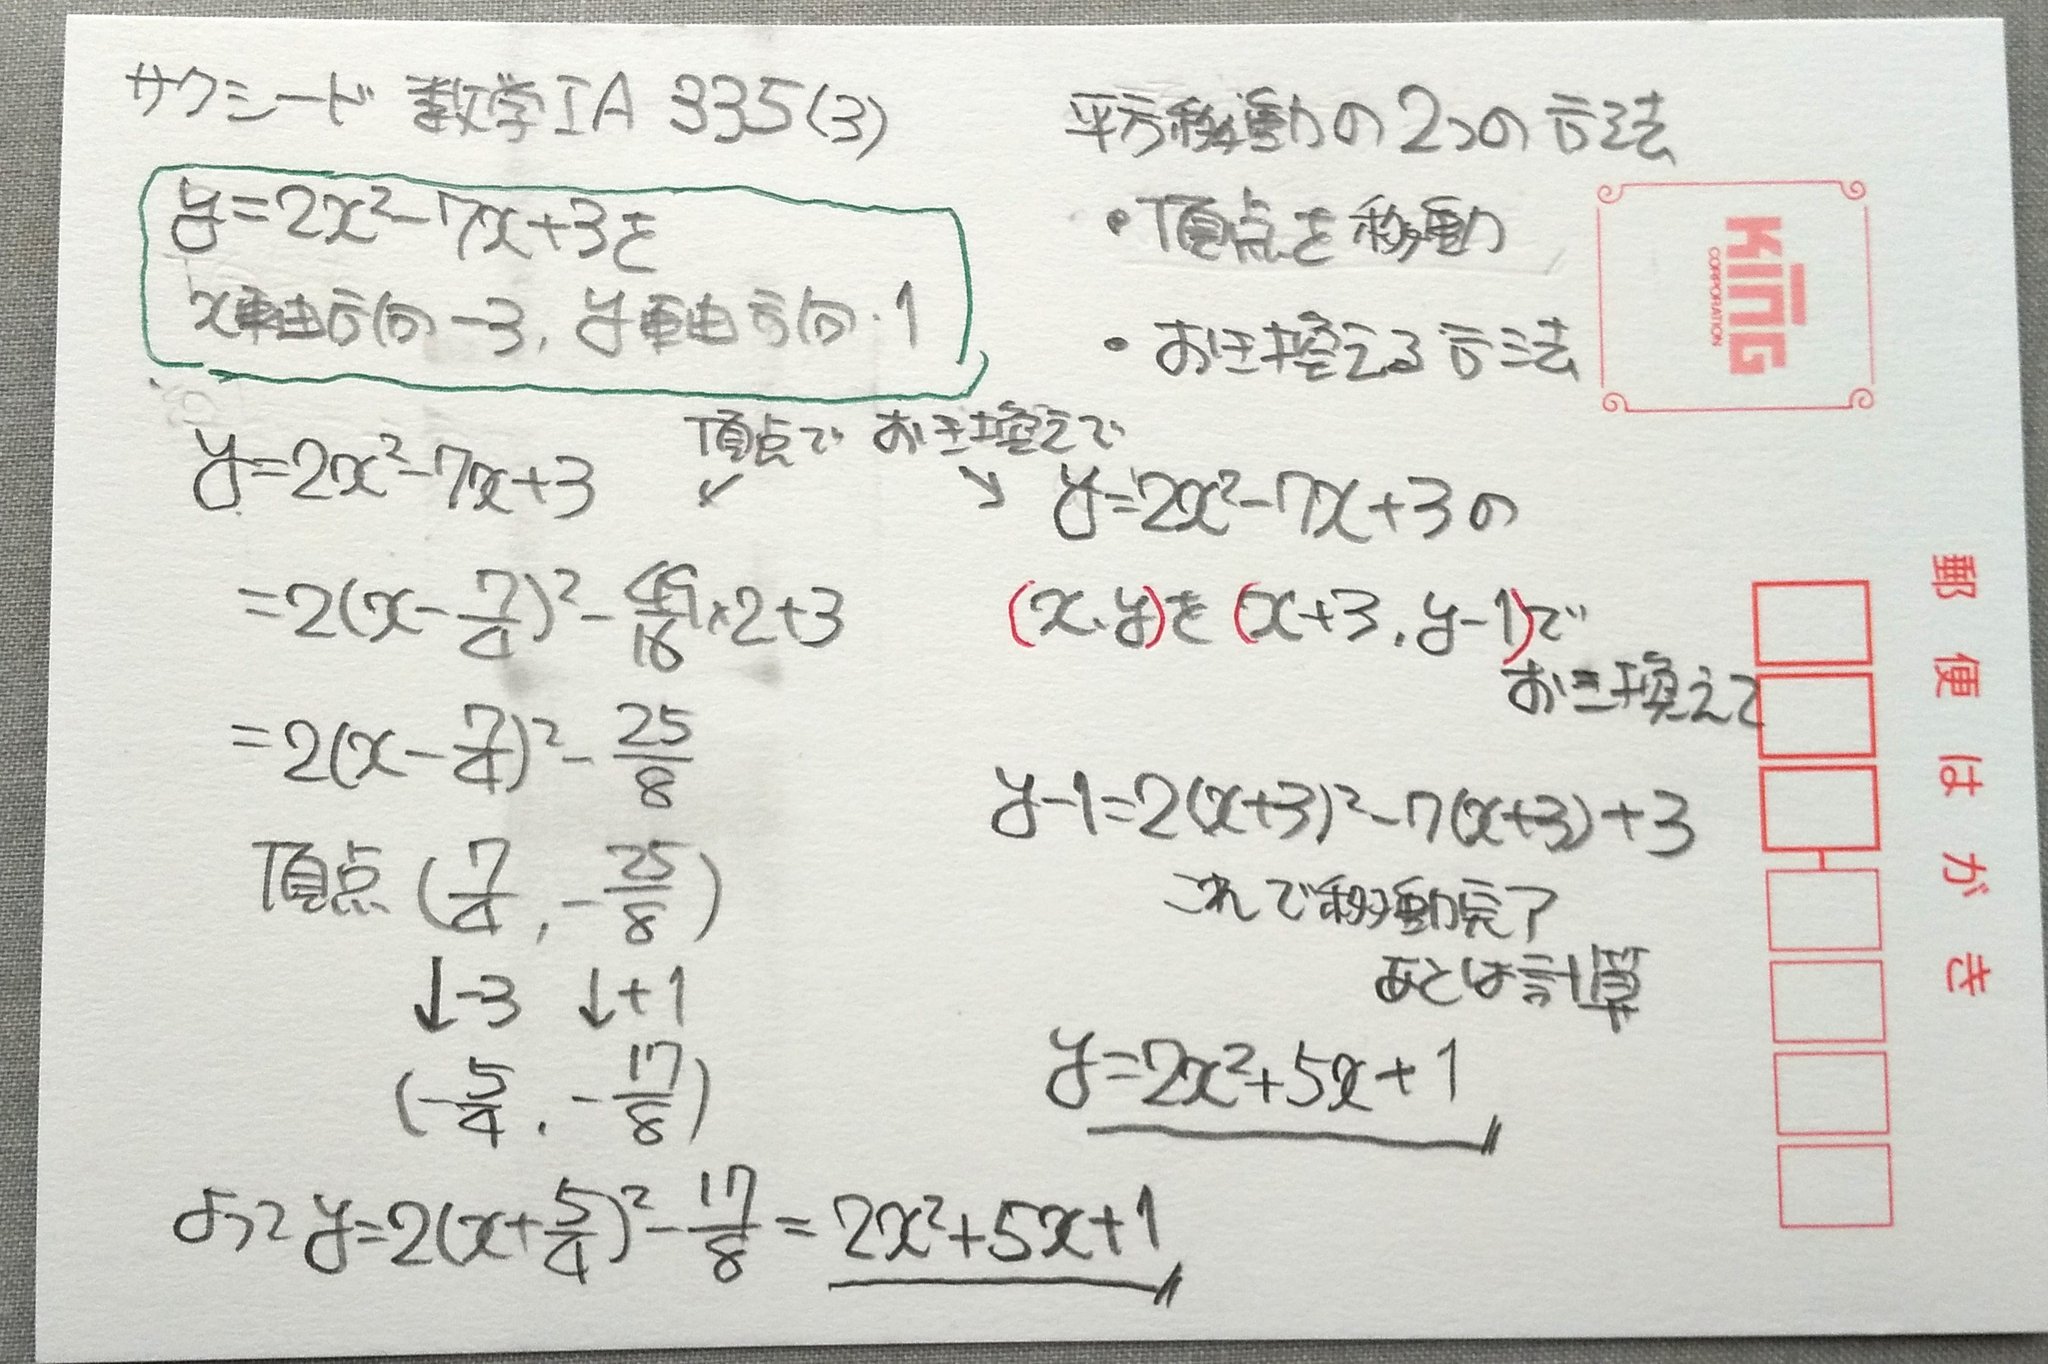 サクシード 数学ⅠA 335(3)
y=2x²-7x+3を
x軸方向-3, y軸方向・1
平方移動の2つの方法
・頂点を移動
・おき換える方法
KING
CORPORATION
頂点で おき換えで
↙ ↘
y=2x²-7x+3
=2(x-7/4)²-49/16×2+3
=2(x-7/4)²-25/8
頂点(7/4, -25/8)
↓-3 ↓+1
(-5/4, -17/8)
よって y=2(x+5/4)²-17/8=2x²+5x+1
y=2x²-7x+3の
(x,y)を(x+3,y-1)で
おき換えて
y-1=2(x+3)²-7(x+3)+3
これで移動完了
あとは計算
y=2x²+5x+1
郵便はがき